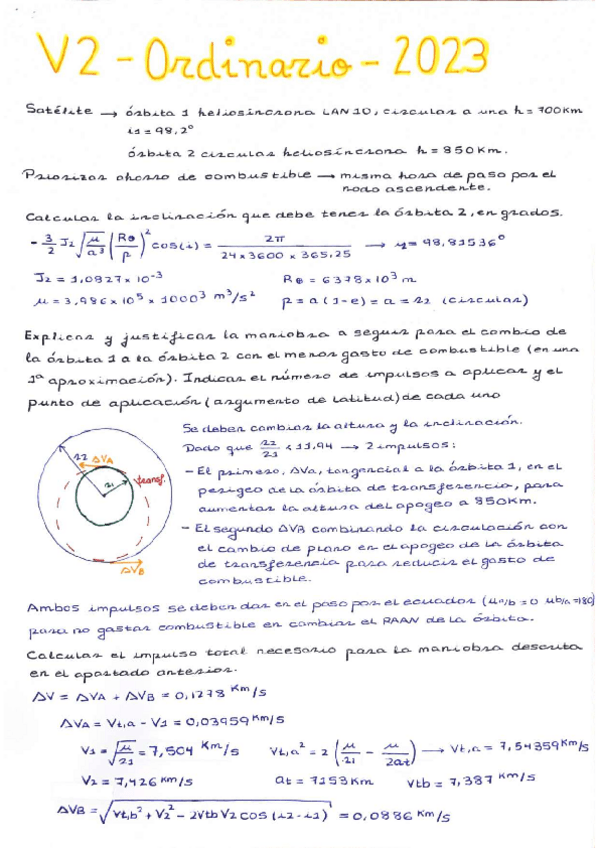 V2 - Ordinario - 2023
Satélite → órbita 1 heliosíncrona LAN 10, circular a una h = 700 Km
i1 = 98,2°
órbita 2 circular heliosíncrona h = 850 Km.
Priorizar ahorro de combustible → misma hora de paso por el
nodo ascendente.
Calcular la inclinación que debe tener la órbita 2, en grados.
- 3/2 J2 √(μ/a³) (R⊕/p)² cos(i) = 2π / (24 x 3600 x 365,25) → y = 98,81536°
J2 = 1,0827 x 10⁻³ R⊕ = 6378 x 10³ m
μ = 3,986 x 10⁵ x 1000³ m³/s² p = a (1-e) = a = r2 (circular)
Explicar y justificar la maniobra a seguir para el cambio de
la órbita 1 a la órbita 2 con el menor gasto de combustible (en una
1ª aproximación). Indicar el número de impulsos a aplicar y el
punto de aplicación (argumento de latitud) de cada uno
Se deben cambiar la altura y la inclinación.
Dado que r2/r1 < 11,94 → 2 impulsos:
r2 ΔVA
r1 transf.
- El primero, ΔVA, tangencial a la órbita 1, en el
perigeo de la órbita de transferencia, para
aumentar la altura del apogeo a 850Km.
- El segundo ΔVB combinando la circulación con
el cambio de plano en el apogeo de la órbita
de transferencia para reducir el gasto de
combustible.
ΔVB
Ambos impulsos se deben dar en el paso por el ecuador (μa/b = 0 μb/a =180)
para no gastar combustible en cambiar el RAAN de la órbita.
Calcular el impulso total necesario para la maniobra descrita
en el apartado anterior.
ΔV = ΔVA + ΔVB = 0,1278 Km/s
ΔVA = Vt,a - V1 = 0,03959 Km/s
V1 = √(μ/r1) = 7,504 Km/s Vt,a² = 2 (μ/r1 - μ/2at) → Vt,a = 7,54359 Km/s
V2 = 7,426 Km/s at = 7153 Km Vtb = 7,387 Km/s
ΔVB = √(Vt,b² + V2² - 2Vtb V2 cos (i2-i1)) = 0,0886 Km/s